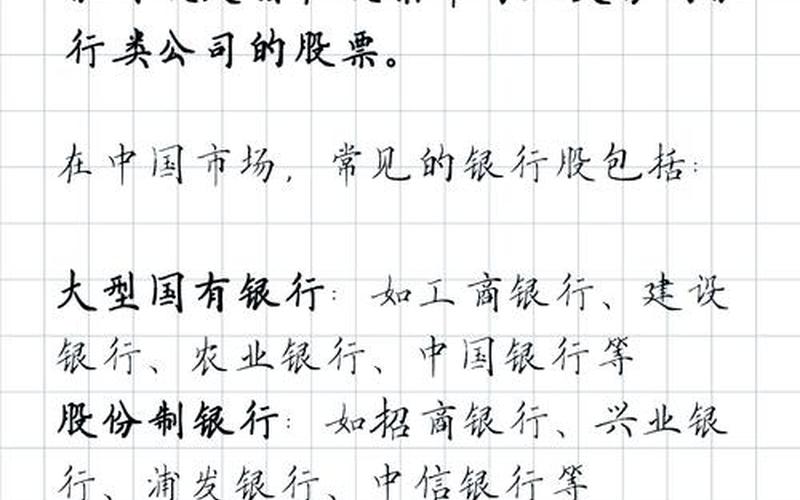 行类公司的股票。
在中国市场，常见的银行股包括：
大型国有银行：如工商银行、建设
银行、农业银行、中国银行等
股份制银行：如招商银行、兴业银
行、浦发银行、中信银行等